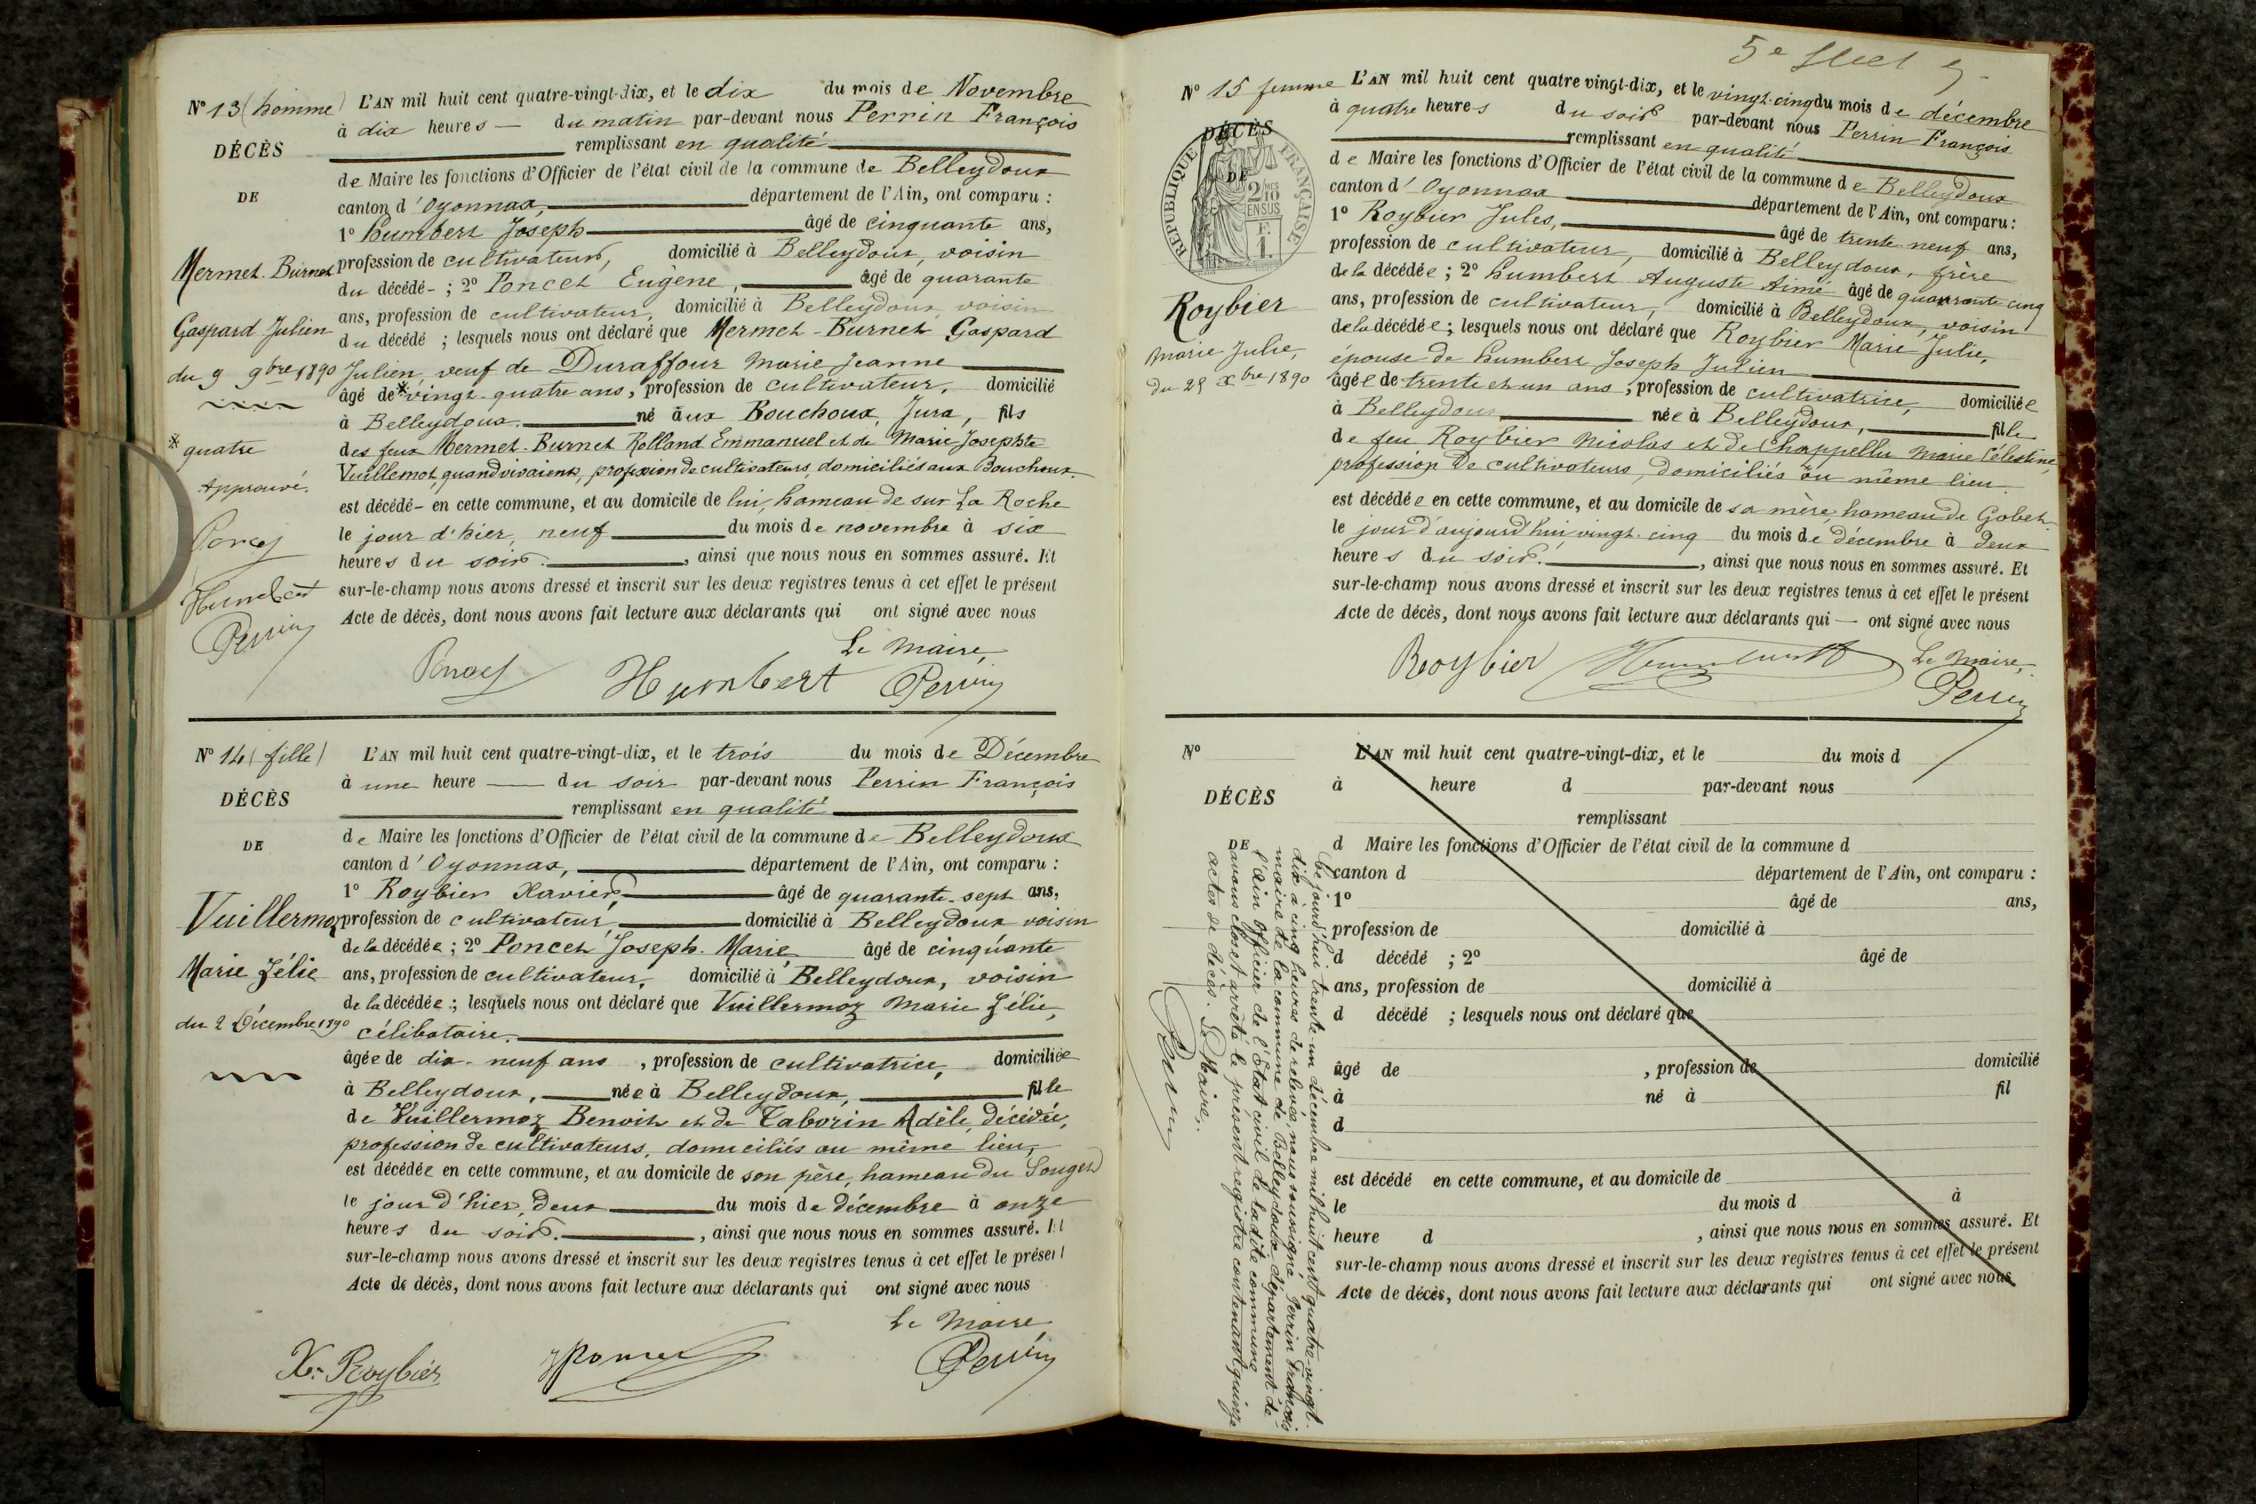 N° 13 (homme)
DÉCÈS
DE
Mermet-Burnet
Gaspard Julien
du 9 9bre 1890
* quatre
Approuvé.
Poncet
Humbert
Perrin
L'AN mil huit cent quatre-vingt-dix, et le dix du mois de Novembre
à dix heures — du matin par-devant nous Perrin François
remplissant en qualité
de Maire les fonctions d'Officier de l'état civil de la commune de Belleydoux
canton d'Oyonnax, département de l'Ain, ont comparu :
1° Humbert Joseph âgé de cinquante ans,
profession de cultivateur, domicilié à Belleydoux, voisin
du décédé- ; 2° Poncet Eugène, âgé de quarante
ans, profession de cultivateur, domicilié à Belleydoux, voisin
du décédé ; lesquels nous ont déclaré que Mermet-Burnet Gaspard
Julien, veuf de Duraffour Marie Jeanne
âgé de * vingt-quatre ans, profession de cultivateur, domicilié
à Belleydoux. né aux Bouchoux, Jura, fils
des feux Mermet-Burnet Rolland Emmanuel et de Marie Josephte
Vuillemot, quand vivaient, profession de cultivateurs, domiciliés aux Bouchoux.
est décédé- en cette commune, et au domicile de lui, hameau de sur La Roche
le jour d'hier, neuf du mois de novembre à six
heures du soir. , ainsi que nous nous en sommes assuré. Et
sur-le-champ nous avons dressé et inscrit sur les deux registres tenus à cet effet le présent
Acte de décès, dont nous avons fait lecture aux déclarants qui ont signé avec nous
Le Maire,
Poncet Humbert Perrin
N° 14 (fille)
DÉCÈS
DE
Vuillermoz
Marie Zélie
du 2 Décembre 1890
L'AN mil huit cent quatre-vingt-dix, et le trois du mois de Décembre
à une heure — du soir par-devant nous Perrin François
remplissant en qualité
de Maire les fonctions d'Officier de l'état civil de la commune de Belleydoux
canton d'Oyonnax, département de l'Ain, ont comparu :
1° Roybier Xavier, âgé de quarante-sept ans,
profession de cultivateur, domicilié à Belleydoux voisin
de la décédée ; 2° Poncet Joseph-Marie, âgé de cinquante
ans, profession de cultivateur, domicilié à Belleydoux, voisin
de la décédée ; lesquels nous ont déclaré que Vuillermoz Marie Zélie,
célibataire.
âgée de dix-neuf ans , profession de cultivatrice, domiciliée
à Belleydoux, née à Belleydoux, fille
de Vuillermoz Benoit et de Taborin Adèle, décédée,
profession de cultivateurs, domiciliés au même lieu,
est décédée en cette commune, et au domicile de son père, hameau du Souget
le jour d'hier, deux du mois de décembre à onze
heures du soir. , ainsi que nous nous en sommes assuré. Et
sur-le-champ nous avons dressé et inscrit sur les deux registres tenus à cet effet le présent
Acte de décès, dont nous avons fait lecture aux déclarants qui ont signé avec nous
Le Maire,
Xr Roybier JPoncet Perrin
N° 15 femme
DÉCÈS
DE
RÉPUBLIQUE FRANÇAISE
2/10mes EN SUS
Roybier
Marie Julie,
du 25 Xbre 1890
L'AN mil huit cent quatre vingt-dix, et le vingt-cinq du mois de décembre
à quatre heures du soir par-devant nous Perrin François
remplissant en qualité
de Maire les fonctions d'Officier de l'état civil de la commune de Belleydoux
canton d'Oyonnax département de l'Ain, ont comparu :
1° Roybier Jules, âgé de trente-neuf ans,
profession de cultivateur, domicilié à Belleydoux, frère
de la décédée ; 2° Humbert Auguste Aimé âgé de quarante-cinq
ans, profession de cultivateur, domicilié à Belleydoux, voisin
de la décédée ; lesquels nous ont déclaré que Roybier Marie Julie,
épouse de Humbert Joseph Julien
âgée de trente et un ans , profession de cultivatrice, domiciliée
à Belleydoux née à Belleydoux, fille
de feu Roybier Nicolas et de Chappellu Marie Célestine,
profession de cultivateurs, domiciliés au même lieu.
est décédée en cette commune, et au domicile de sa mère, hameau de Gobet
le jour d'aujourd'hui vingt-cinq du mois de décembre à deux
heures du soir. , ainsi que nous nous en sommes assuré. Et
sur-le-champ nous avons dressé et inscrit sur les deux registres tenus à cet effet le présent
Acte de décès, dont nous avons fait lecture aux déclarants qui — ont signé avec nous
Le Maire,
Roybier Humbert Perrin
N°
DÉCÈS
DE
L'AN mil huit cent quatre-vingt-dix, et le du mois d
à heure d par-devant nous
remplissant
d Maire les fonctions d'Officier de l'état civil de la commune d
canton d département de l'Ain, ont comparu :
1° âgé de ans,
profession de domicilié à
d décédé ; 2° âgé de
ans, profession de domicilié à
d décédé ; lesquels nous ont déclaré que
âgé de , profession de domicilié
à né à fil
d
est décédé en cette commune, et au domicile de
le du mois d à
heure d , ainsi que nous nous en sommes assuré. Et
sur-le-champ nous avons dressé et inscrit sur les deux registres tenus à cet effet le présent
Acte de décès, dont nous avons fait lecture aux déclarants qui ont signé avec nous
Ce jourd'hui trente-un décembre mil huit cent quatre-vingt-
dix à cinq heures de relevée, nous soussigné Perrin François
maire de la commune de Belleydoux département de
l'ain officier de l'Etat civil de ladite commune
avons clos et arrêté le présent registre contenant quinze
actes de décès. Le Maire,
Perrin